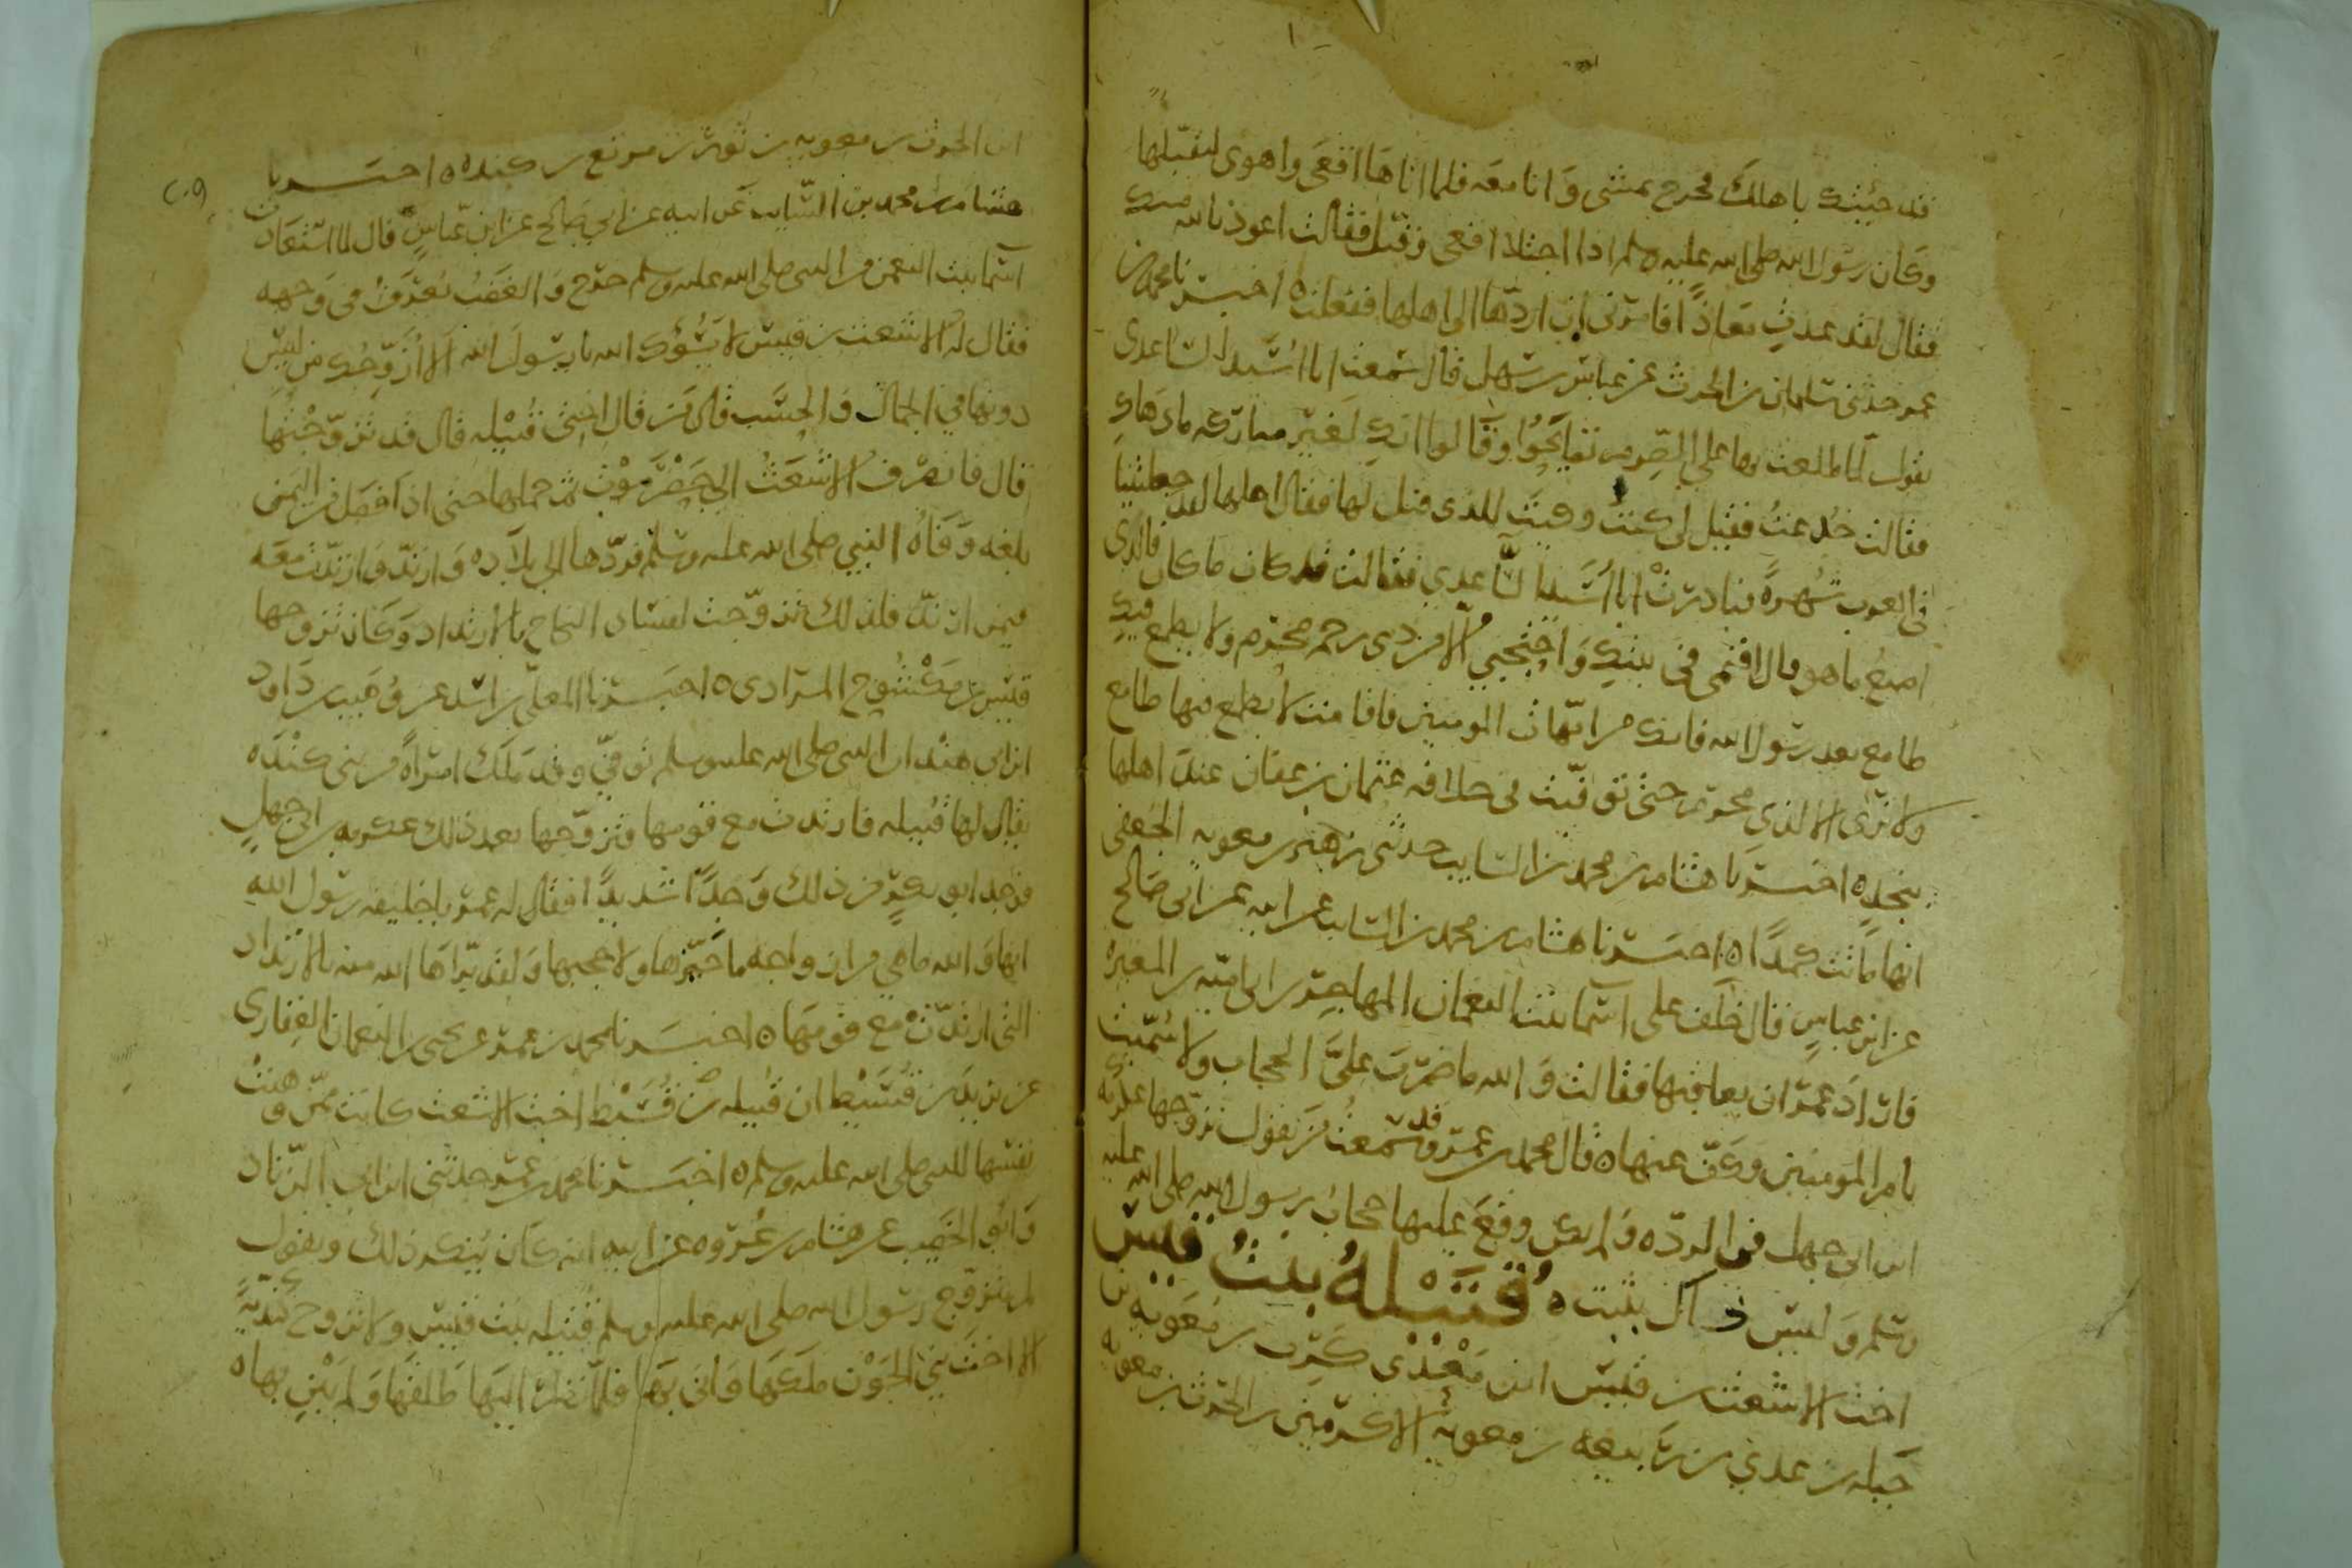 قد جئتك باهلك فخرج يمشى وَانا معَه فلما اتاهَا اقعَى واهوى ليقبّلها
وكَان رسُول الله صلى الله عليه وسلم اذا اجتلا اقعى وقبّل فقالت اعوذ بالله منك
فقال لقد عذتِ مَعَاذًا فامرَنى ان اردّها الى اهلها ففعلت ه اخبرنا محمد بن
عمر حدثنى سليمان بن الحرث عن عباس بن سهل قال سمعت ابا اُسَيد الساعدى
يقول لما طلعت بها على الصّرم تصايَحُوا وقالوا انكِ لغَير مباركه ما دهاكِ
فقالت خُدعتُ فقيل لى كيتُ وكيتَ للذى قيل لها فقال اهلها لقد جعلتينا
فى العرب شُهرَةً فنادت ابا اُسَيد السَّاعدي فقالت قد كان ما كان فالذى
اصنعُ ما هو قال اقيمى فى بيتكِ وَاحتجبي الّا من ذى رحم محرم ولا يطمع فيكِ
طامع بعد رسُول الله فانك من امّهات المومنين فاقامت لا يطمع فيها طامع
ولا تُرَى الا لذي محرم حتى توفيت فى خلافه عثمان بن عفان عند اهلها
بنجد ه اخبرنا هشام بن محمد بن السايب حدثنى زهير بن معويه الجعفى
انها ماتت كمدًا ه اخبرنا هشام بن محمد بن السايب عن ابيه عن ابى صَالح
عن ابن عباسٍ قال خلَف على اسما بنت النعمان المهاجر بن ابى اميّه بن المغيره
فارادَ عمرُ ان يعاقبها فقالت وَالله ما ضربَ عليَّ الحجاب ولا سُمّيت
بام المومنين وكفّ عنها ه قال محمد بن عمر وقد سمعتُ من يقول تزوّجها عكرمه
ابن ابى جهل فى الردّه وَلم يكن وقعَ عليها حجاب رسُول الله صلى الله عليه
وسلم وَليس ذاك بثبت ه قُتَيْلهُ بنتُ قيس
اخت الاشعث بن قيس ابن مَعْدى كَرِب بن مُعَويه بن
جَبله بن عدي بن رَبيعه بن معويهَ الاكرمين بن الحرث بن معويه
ابن الحرث بن معويه بن ثور بن مرتع بن كنده ه اخبرنا
هشام بن محمد بن السّايب عَن ابيه عن ابي صَالح عن ابن عبّاسٍ قال لما استَعَاذت
اسما بنت النعمن من النبى صلى الله عليه وسلم خرَج وَالغضَبُ يُعرَفُ فى وَجهه
فقال له الاشعث بن قيس لا يسُؤك الله يا رسُولَ الله الا اُزوّجُك من ليسَ
دونها في الجمال وَالحسَب قال مَن قال اختى قُتَيْله قال قد تزوّجتُها
قال فانصَرفُ الاشعَثُ الى حَضْرَمَوْت ثم حملها حتى اذا فصَل من اليمن
بلغه وَفَاهُ النبي صلى الله عليه وسلم فردّها الى بلاده وَارتدّ وَارتدّت معَه
فيمن ارتدّ فلذلك تزوّجت لفسَاد النكاح بالارتداد وَكَان تزوّجها
قيس بن مَكْشُوح المرَادى ه اخبرنا المعلّى بن اسد عن وُهَيب بن دَاود
ابن ابى هند ان النبى صلى الله عليه وسلم توفّي وقد ملَك امرَاهً من بنى كنْدَه
يقال لها قُتيله فارتدت مع قومها فتزوّجها بعد ذلك عكرمه بن ابى جهل
فوَجد ابو بكرٍ من ذلك وَجدًا شديدًا فقال له عمر يا خليفه رسُول الله
انها وَالله ما هي من ازواجه ما خيّرهَا ولا حجبها وَلقد برّاهَا الله منه بالارتداد
التى ارتدّت مع قومهَا ه اخبرنا محمد بن عمر عن يحيى بن النعمان الغِفارى
عن يزيد بن قُسَيْط ان قتيله اخت الاشعث كانت ممّن وهبَتْ
نفسَها للنبى صلى الله عليه وسلم ه اخبَرنا محمد بن عمر حدثنى ابن ابى الزّناد
وَابُو الخصِيب عن هشام بن عُروه عن ابيه انه كَان يُنكر ذلك ويقول
لم يتزوّج رسُول الله صلى الله عليه وسلم قُتيله بنت قيس ولا تزوج كنديّهً
الا اختَ بَنى الجَوْن ملَكهَا وَاتى بهَا فلمّا نظرَ اليهَا طَلقهَا وَلم يَبْنِ بها ه